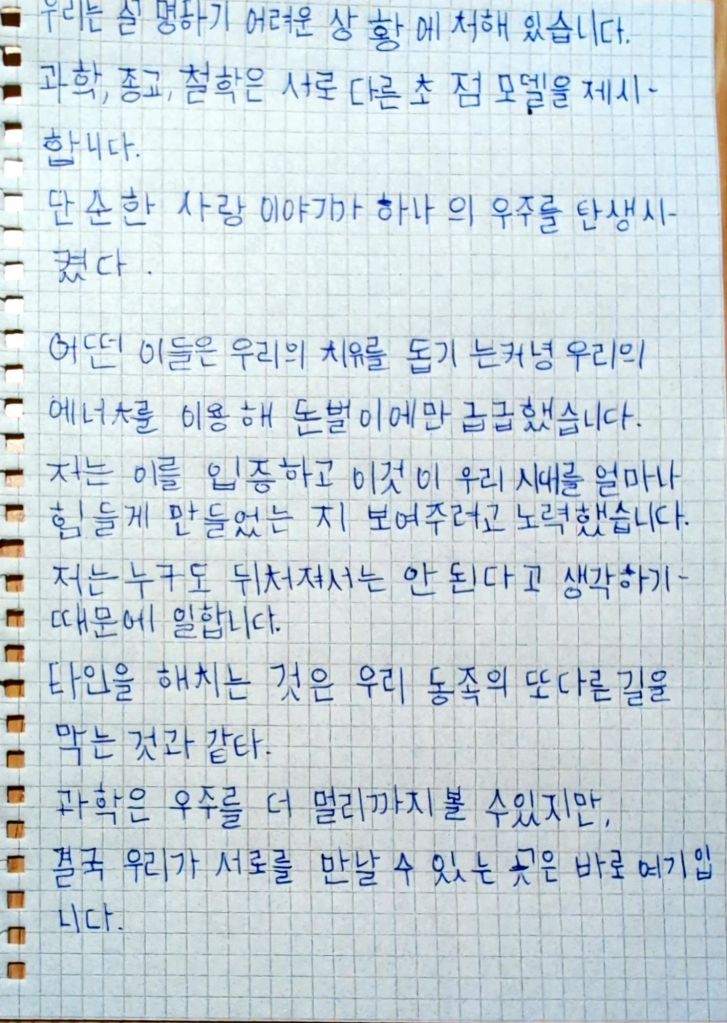 우리는 설명하기 어려운 상황에 처해 있습니다.
과학, 종교, 철학은 서로 다른 초점 모델을 제시-
합니다.
단순한 사랑 이야기가 하나의 우주를 탄생시-
켰다.
어떤 이들은 우리의 치유를 돕기는커녕 우리의
에너지를 이용해 돈벌이에만 급급했습니다.
저는 이를 입증하고 이것이 우리 시대를 얼마나
힘들게 만들었는지 보여주려고 노력했습니다.
저는 누구도 뒤처져서는 안 된다고 생각하기-
때문에 일합니다.
타인을 해치는 것은 우리 동족의 또다른 길을
막는 것과 같타.
과학은 우주를 더 멀리까지 볼 수 있지만,
결국 우리가 서로를 만날 수 있는 곳은 바로 여기입
니다.